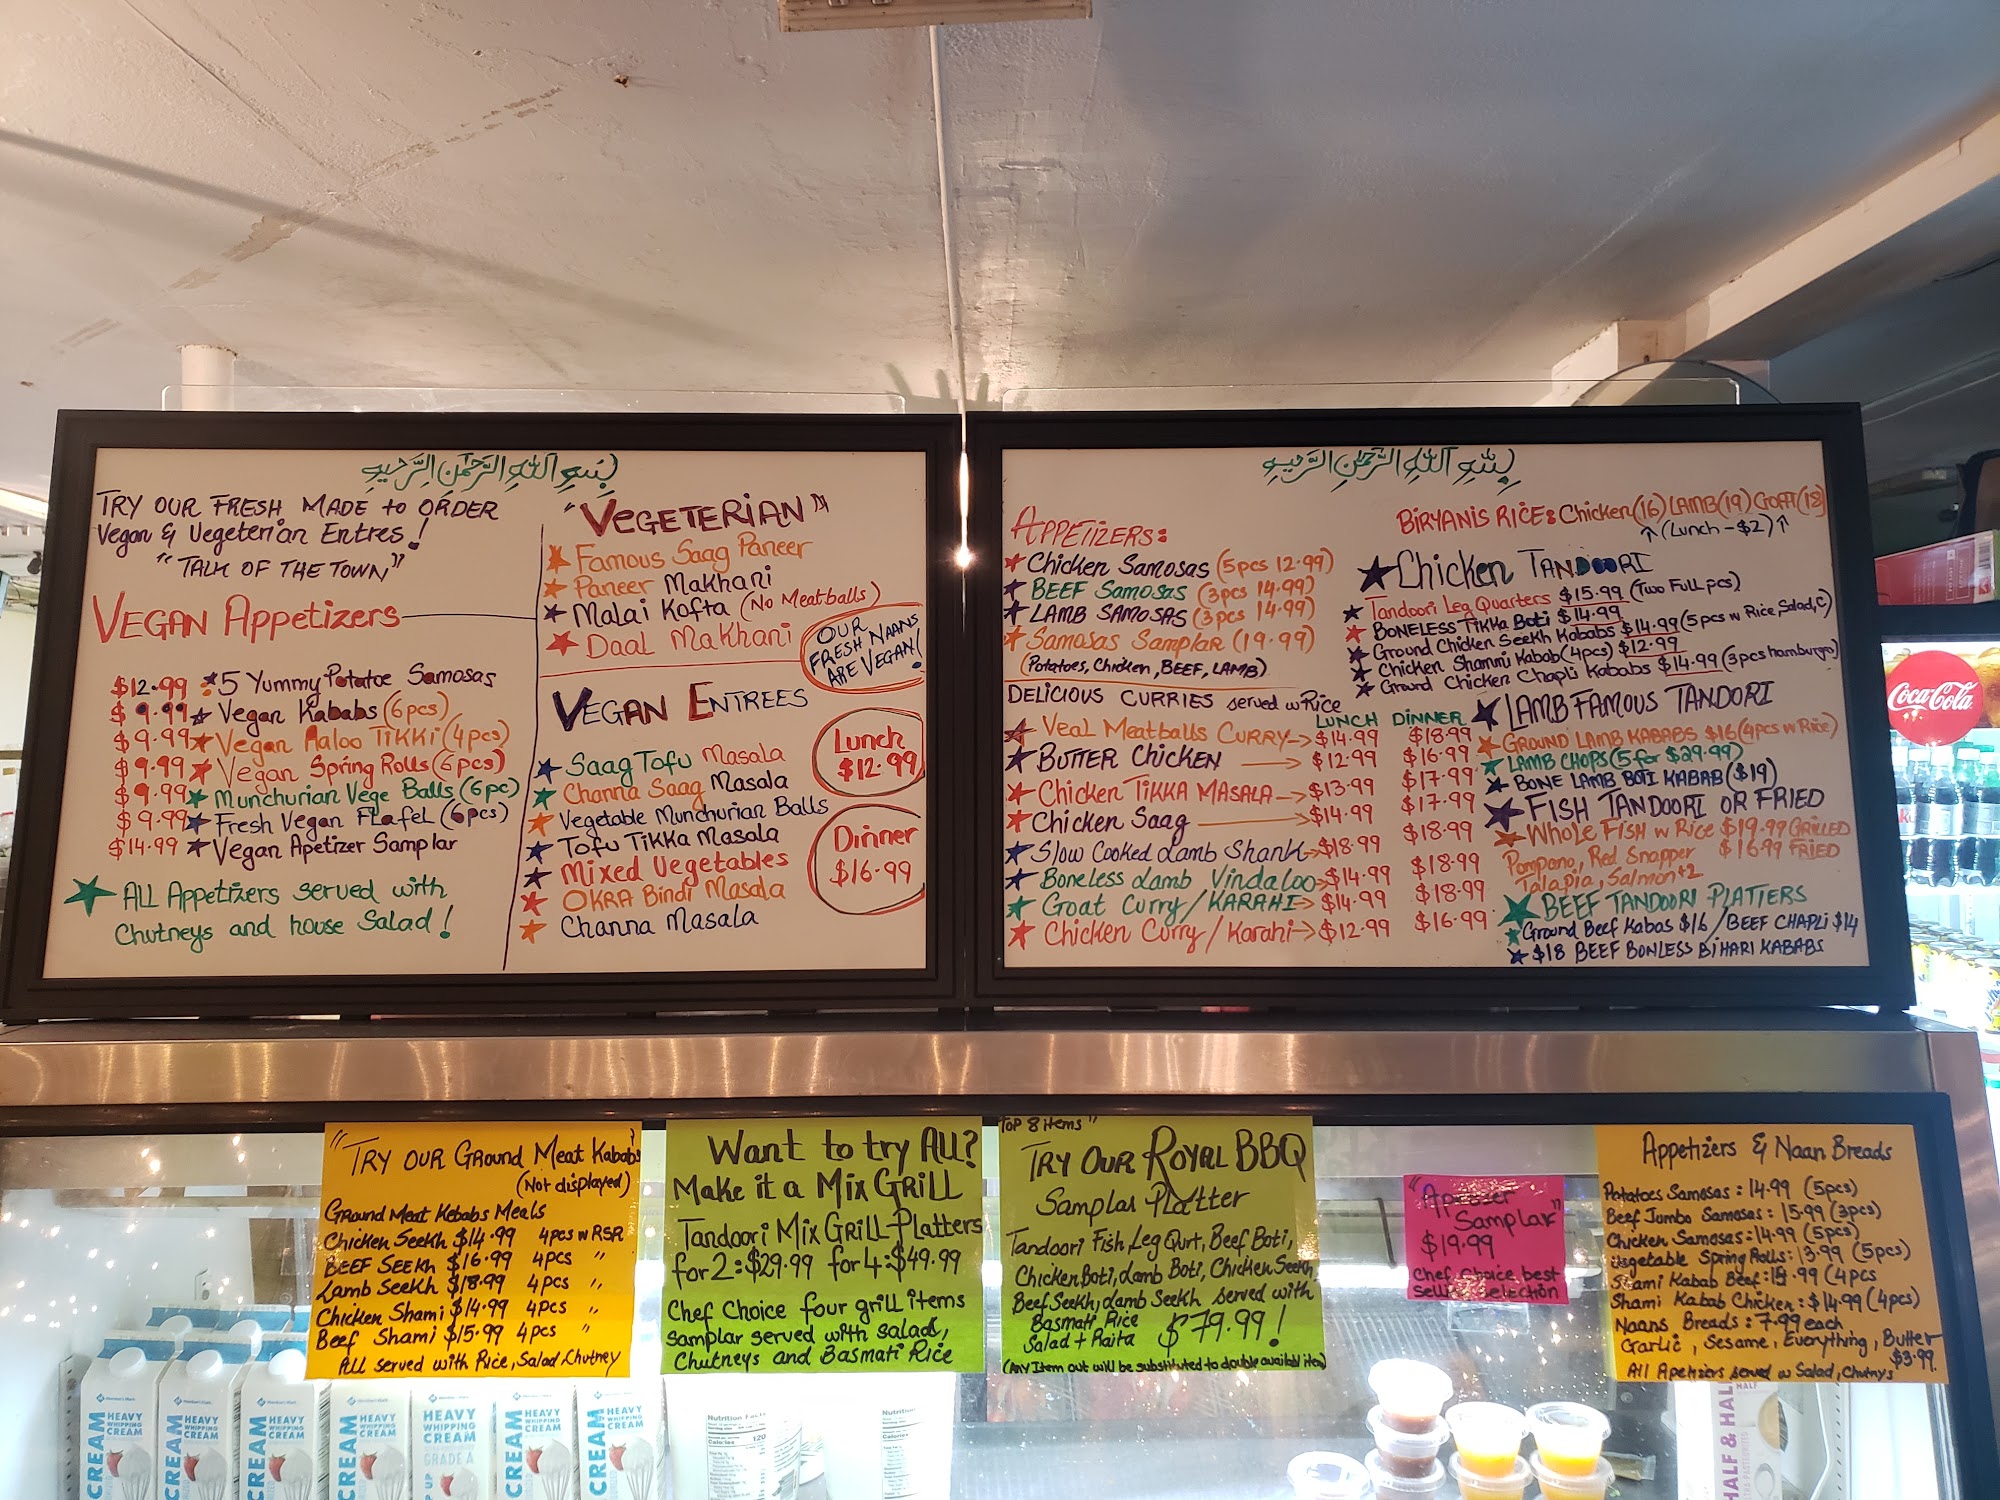 بِسْمِ اللهِ الرَّحْمٰنِ الرَّحِيمِ
TRY OUR FRESH MADE to ORDER
Vegan & Vegeterian Entres!
"TALK OF THE TOWN"
VEGAN Appetizers
$12.99 5 Yummy Potatoe Samosas
$9.99 Vegan Kababs (6pcs)
$9.99 Vegan Aaloo TIKKI (4pcs)
$9.99 Vegan Spring Rolls (6pcs)
$9.99 Munchurian Vege Balls (6pc)
$9.99 Fresh Vegan FLafel (6pcs)
$14.99 Vegan Apetizer Samplar
ALL Appetizers served with
Chutneys and house Salad!
"VEGETERIAN"
Famous Saag Paneer
Paneer Makhani
Malai Kofta (No Meatballs)
Daal Makhani
OUR
FRESH NAANS
ARE VEGAN!
VEGAN ENTREES
Saag Tofu Masala
Channa Saag Masala
Vegetable Munchurian Balls
Tofu Tikka Masala
Mixed Vegetables
OKRA Bindi Masala
Channa Masala
Lunch
$12.99
Dinner
$16.99
بِسْمِ اللهِ الرَّحْمٰنِ الرَّحِيمِ
APPETIZERS:
Chicken Samosas (5pcs 12.99)
BEEF Samosas (3pcs 14.99)
LAMB SAMOSAS (3pcs 14.99)
Samosas Samplar (19.99)
(Potatoes, Chicken, BEEF, LAMB)
DELICIOUS CURRIES served w Rice
LUNCH DINNER
Veal Meatballs CURRY $14.99 $18.99
BUTTER Chicken $12.99 $16.99
Chicken TIKKA MASALA $13.99 $17.99
Chicken Saag $14.99 $17.99
Slow Cooked Lamb Shank $18.99 $18.99
Boneless Lamb Vindaloo $14.99 $18.99
Goat Curry/KARAHI $14.99 $18.99
Chicken Curry/Karahi $12.99 $16.99
BIRYANIS RICE: Chicken (16) LAMB (19) GOAT (18)
↑ (Lunch - $2) ↑
Chicken TANDOORI
Tandoori Leg Quarters $15.99 (Two Full pcs)
BONELESS TIKKA Boti $14.99
Ground Chicken Seekh Kababs $14.99 (5pcs w Rice, Salad, C)
Chicken Shammi Kabob (4pcs) $12.99
Ground Chicken Chapli Kababs $14.99 (3pcs hamburgo)
LAMB FAMOUS TANDORI
GROUND LAMB KABABS $16 (4pcs w Rice)
LAMB CHOPS (5 for $29.99)
BONE LAMB BOTI KABAB ($19)
FISH TANDOORI OR FRIED
Whole FISH w Rice $19.99 GRILLED
Pompano, Red Snapper $16.99 FRIED
Talapia, Salmon +2
BEEF TANDOORI PLATTERS
Ground Beef Kabas $16 / BEEF CHAPLI $14
$18 BEEF BONLESS BIHARI KABABS
"TRY OUR Ground Meat Kababs"
(Not displayed)
Ground Meat Kebabs Meals
Chicken Seekh $14.99 4pcs w RSR
BEEF SEEKH $16.99 4pcs "
Lamb Seekh $18.99 4pcs "
Chicken Shami $14.99 4pcs "
Beef Shami $15.99 4pcs "
All served with Rice, Salad, Chutney
Want to try All?
Make it a Mix GRILL
Tandoori Mix GRILL-Platters
for 2: $29.99 for 4: $49.99
Chef Choice four grill items
Samplar served with salads,
Chutneys and Basmati Rice
TOP 8 Items"
TRY OUR ROYAL BBQ
Samplar Platter
Tandoori Fish, Leg Qurt, Beef Boti,
Chicken Boti, Lamb Boti, Chicken Seekh,
Beef Seekh, Lamb Seekh served with
Basmati Rice
Salad + Raita $79.99!
(Any Item out will be substituted to double available item)
Samplar"
$19.99
Chef Choice best
selling selection
Appetizers & Naan Breads
Potatoes Samosas: 14.99 (5pcs)
Beef Jumbo Samosas: 15.99 (3pcs)
Chicken Samosas: 14.99 (5pcs)
Vegetable Spring Rolls: 13.99 (5pcs)
Shami Kabab Beef: .99 (4pcs
Shami Kabab Chicken: $14.99 (4pcs)
Naans Breads: 7.99 each
Garlic, Sesame, Everything, Butter
$3.99
All Apetizers served w Salad, Chutnys
Coca-Cola
HEAVY WHIPPING CREAM
HEAVY WHIPPING CREAM
HEAVY WHIPPING CREAM
HEAVY WHIPPING CREAM
HEAVY WHIPPING CREAM
GRADE A
HEAVY WHIPPING CREAM
HEAVY WHIPPING CREAM
CREAM
CREAM
CREAM
CREAM
CREAM
CREAM
Nutrition Facts
Calories 120
Nutrition
Calories
HALF & HALF